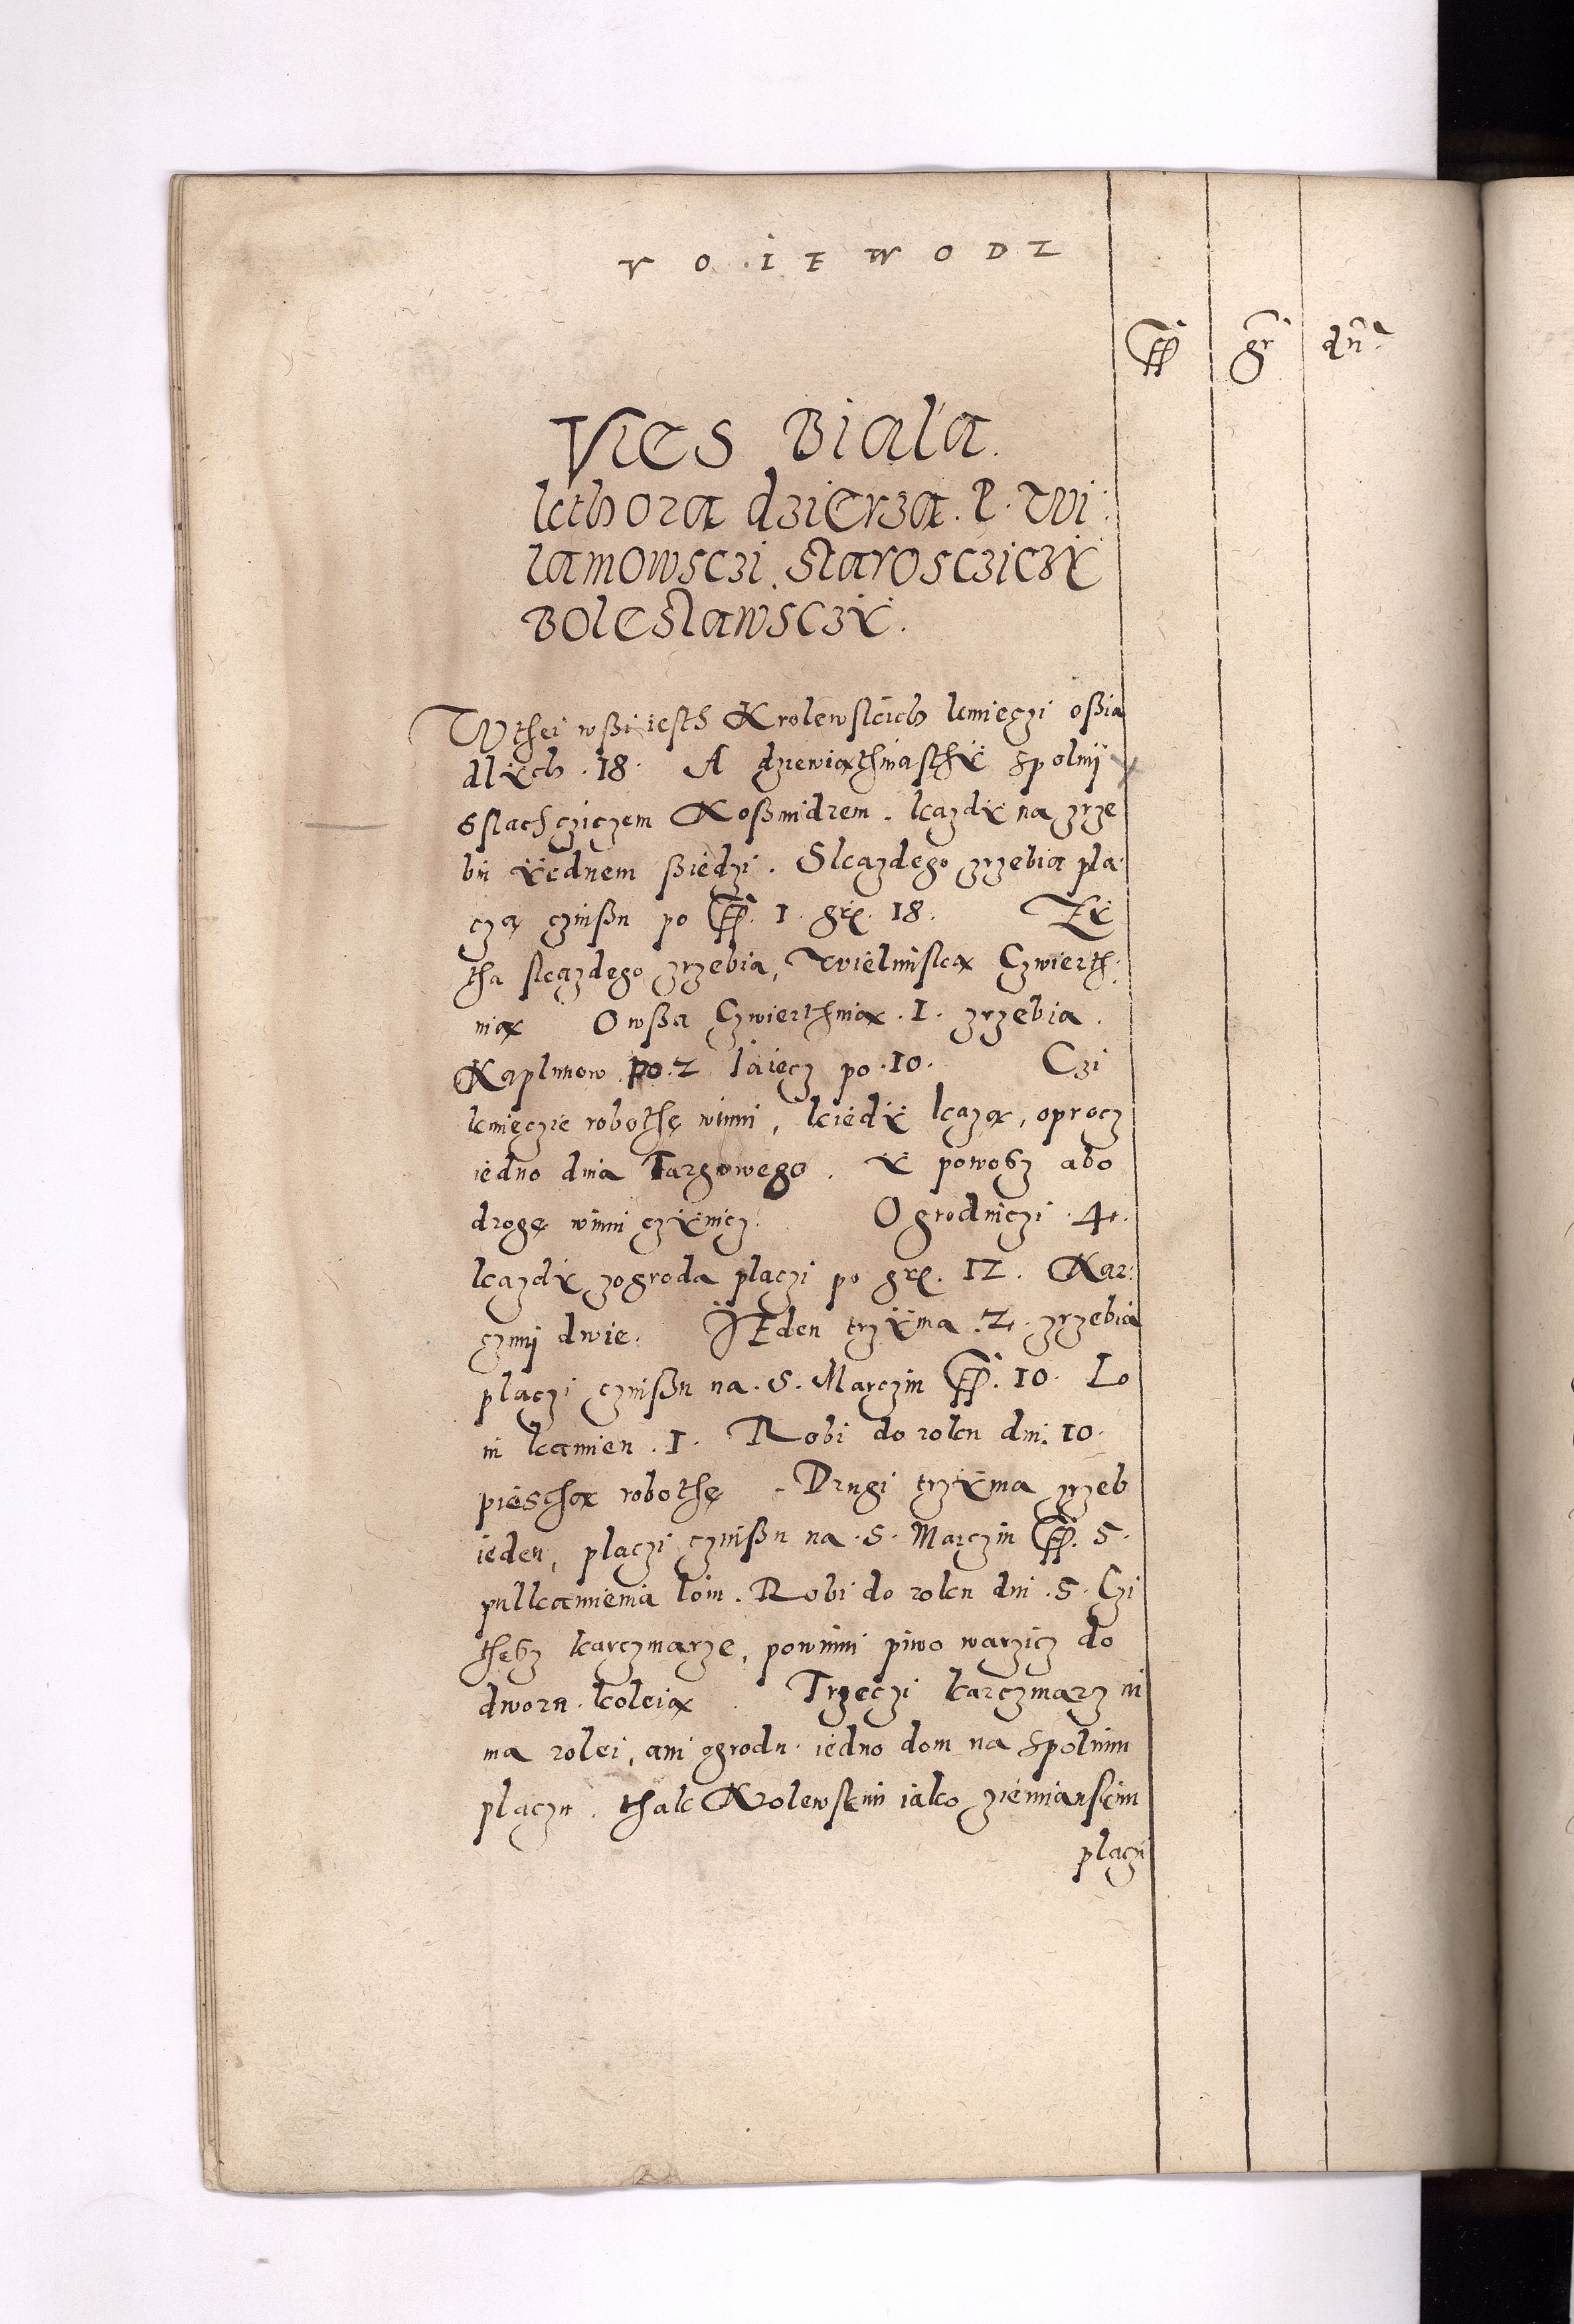 VOIEWODZ
fl gr dn.
Vies Biała.
kthora dzierza. P. Wi:
lamowsczi Starosczicży
Bolesławsczy.
W thei wßi iesth Krolewskich kmieczi oßia
dlych . 18. A dzewiathnasthy spolnÿ
s slachcziczem Koßmidrem. kazdy na zrze
biu yednem ßiedzi. Skazdego zrzebia pla
czą czinßu po fl. 1. gr. 18. Zy
tha skazdego zrzebia, Wielunską Czwierth
nią Owßa Czwierthnią . 1. zrzebia.
Kaplunow po. 2 Iaiecz po . 10. Czi
kmieczie robothę winni, kiedy każą, oprocz
iedno dnia Targowego. y powosz abo
drogę winni czynicz. Ogrodniczi . 4.
kazdy zogroda placzi po gr. 12. Kar:
czmÿ dwie. IEden trzyma . 2. zrzebia
placzi czinßu na . S. Marczin fl. 10. Lo
iu kamien . 1. Robi do rolcu dni. 10.
piesthą robothę Drugi trzyma zrzeb
ieden, placzi czinßu na . S. Marczin fl. 5.
pulkamienia loiu. Robi do rolcu dni . 5. Czi
thesz karczmarze, powinni piwo warzicz do
dworu. koleią. Trzeczi karczmarz ni
ma rolei, ani ogrodu. iedno dom na spolnim
placzu. thak Krolewskim iako ziemianskim
placzi